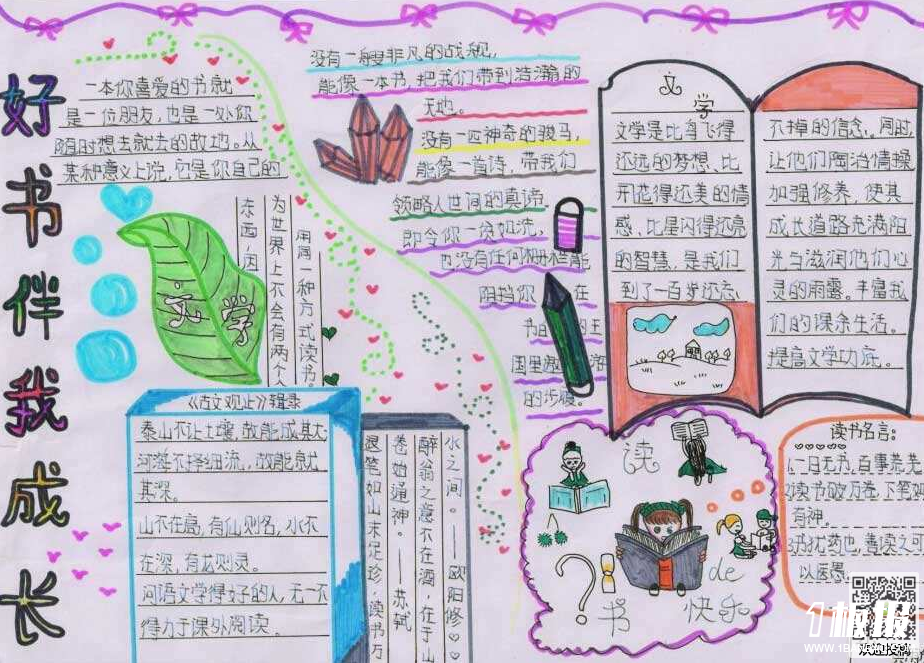 好书伴我成长
一本你喜爱的书就
是一位朋友,也是一处你
随时想去就去的故地。从
某种意义上说,它是你自己的
东西,因
为世界上不会有两个人
用同一种方式读书。
文学
没有一艘非凡的战舰,
能像一本书,把我们带到浩瀚的
天地。
没有一匹神奇的骏马,
能像一首诗,带我们
领略人世间的真谛。
即令你一贫如洗,
也没有任何栅栏能
阻挡你在
书的王
国里遨
的步履。
文学
文学是比鸟飞得
还远的梦想、比
开花得还美的情
感、比星闪得还亮
的智慧,是我们
到了一百岁还忘
不掉的信念。同时
让他们陶冶情操
加强修养,使其
成长道路充满阳
光与滋润他们心
灵的雨露。丰富我
们的课余生活。
提高文学功底。
《古文观止》辑录
泰山不让土壤,故能成其大
河海不择细流,故能就
其深。
山不在高,有仙则名,水不
在深,有龙则灵。
问语文学得好的人,无一不
得力于课外阅读。
退笔如山未足珍,读书万
卷始通神。——苏轼
醉翁之意不在酒,在乎山
水之间。——欧阳修
读
书
de
快乐
读书名言:
1、一日无书,百事荒芜
2读书破万卷,下笔如
有神。
3书犹药也,善读之可
以医愚
1板报
WWW.1BANBAO.COM
欢迎投稿